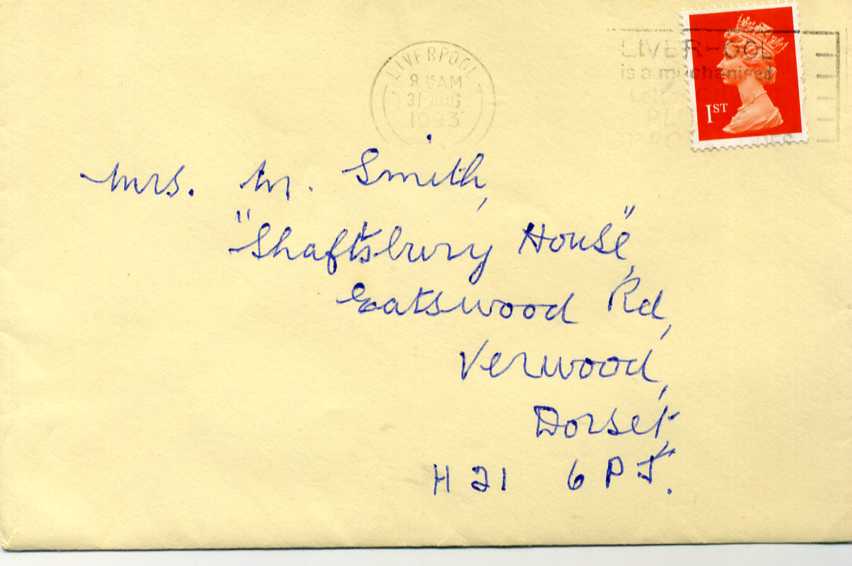 LIVERPOOL
8 15AM
31 AUG
1993
LIVERPOOL
is a mechanised
1ST
Mrs. M. Smith,
"Shaftsbury House",
Eatswood Rd,
Verwood,
Dorset,
H21 6PJ.